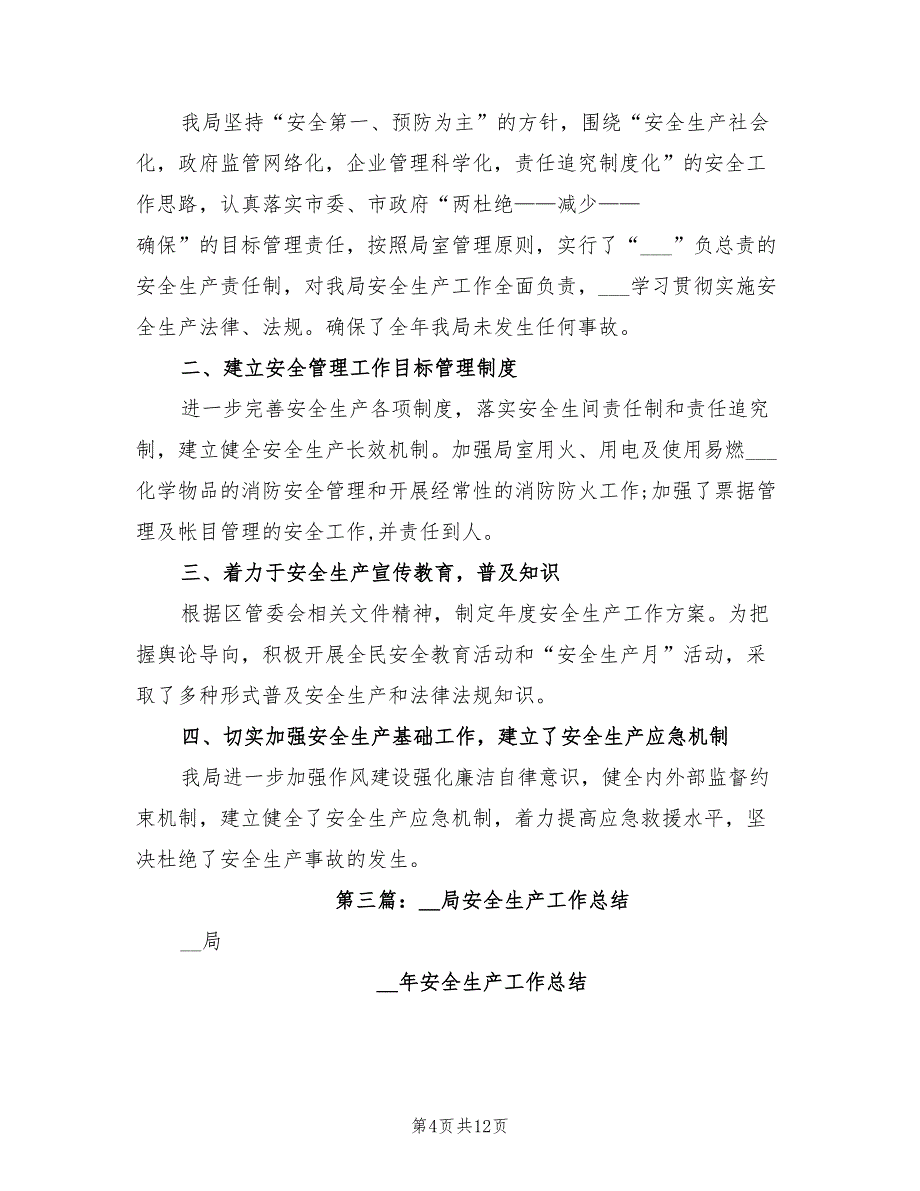 我局坚持“安全第一、预防为主”的方针，围绕“安全生产社会
化，政府监管网络化，企业管理科学化，责任追究制度化”的安全工
作思路，认真落实市委、市政府“两杜绝——减少——
确保”的目标管理责任，按照局室管理原则，实行了“___”负总责的
安全生产责任制，对我局安全生产工作全面负责，___学习贯彻实施安
全生产法律、法规。确保了全年我局未发生任何事故。
二、建立安全管理工作目标管理制度
进一步完善安全生产各项制度，落实安全生间责任制和责任追究
制，建立健全安全生产长效机制。加强局室用火、用电及使用易燃___
化学物品的消防安全管理和开展经常性的消防防火工作;加强了票据管
理及帐目管理的安全工作,并责任到人。
三、着力于安全生产宣传教育，普及知识
根据区管委会相关文件精神，制定年度安全生产工作方案。为把
握舆论导向，积极开展全民安全教育活动和“安全生产月”活动，采
取了多种形式普及安全生产和法律法规知识。
四、切实加强安全生产基础工作，建立了安全生产应急机制
我局进一步加强作风建设强化廉洁自律意识，健全内外部监督约
束机制，建立健全了安全生产应急机制，着力提高应急救援水平，坚
决杜绝了安全生产事故的发生。
第三篇：__局安全生产工作总结
__局
__年安全生产工作总结
第4页共12页